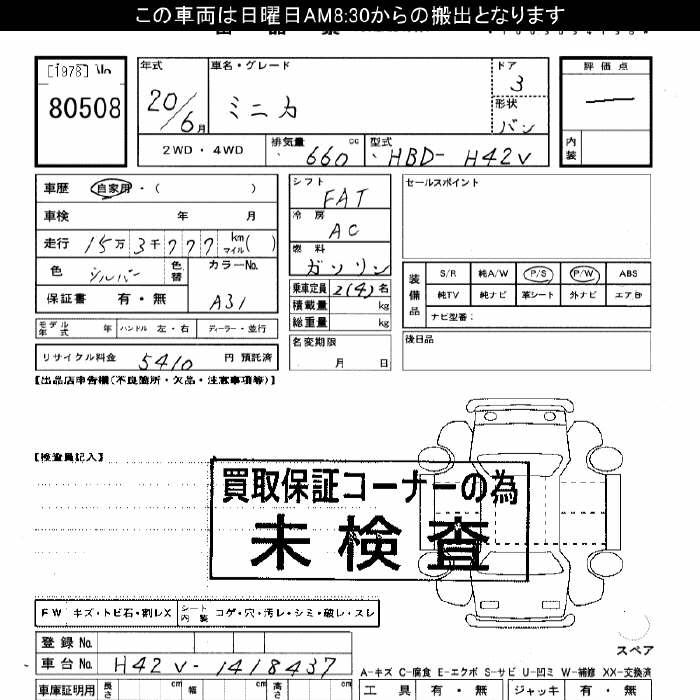 この車両は日曜日AM8:30からの搬出となります
[1978] No
80508
年式
20/6月
車名・グレード
ミニカ
ドア
3
形状
バン
評価点
内装
2WD・4WD
排気量
660
cc
型式
HBD- H42V
車歴 自家用・( )
車検 年 月
走行 15万 3千 777 km マイル ( )
色 シルバー 色替 カラーNo. A31
保証書 有・無
モデル年式 年 ハンドル 左・右 ディーラー・並行
リサイクル料金 5410 円 預託済
シフト
FAT
冷房
AC
燃料
ガソリン
乗車定員 2(4) 名
積載量 kg
総重量 kg
名変期限
月 日
セールスポイント
装備品
S/R 純A/W P/S P/W ABS
純TV 純ナビ 革シート 外ナビ エアB
ナビ型番:
後日品
【出品店申告欄(不良箇所・欠品・注意事項等)】
【検査員記入】
買取保証コーナーの為
未検査
FW キズ・トビ石・割レX シート内装 コゲ・穴・汚レ・シミ・破レ・スレ
登録 No.
車台 No. H42V-1418437
車庫証明用 長さ cm 幅 cm 高さ cm
スペア
A-キズ C-腐食 E-エクボ S-サビ U-凹ミ W-補修 XX-交換済
工具 有・無 ジャッキ 有・無